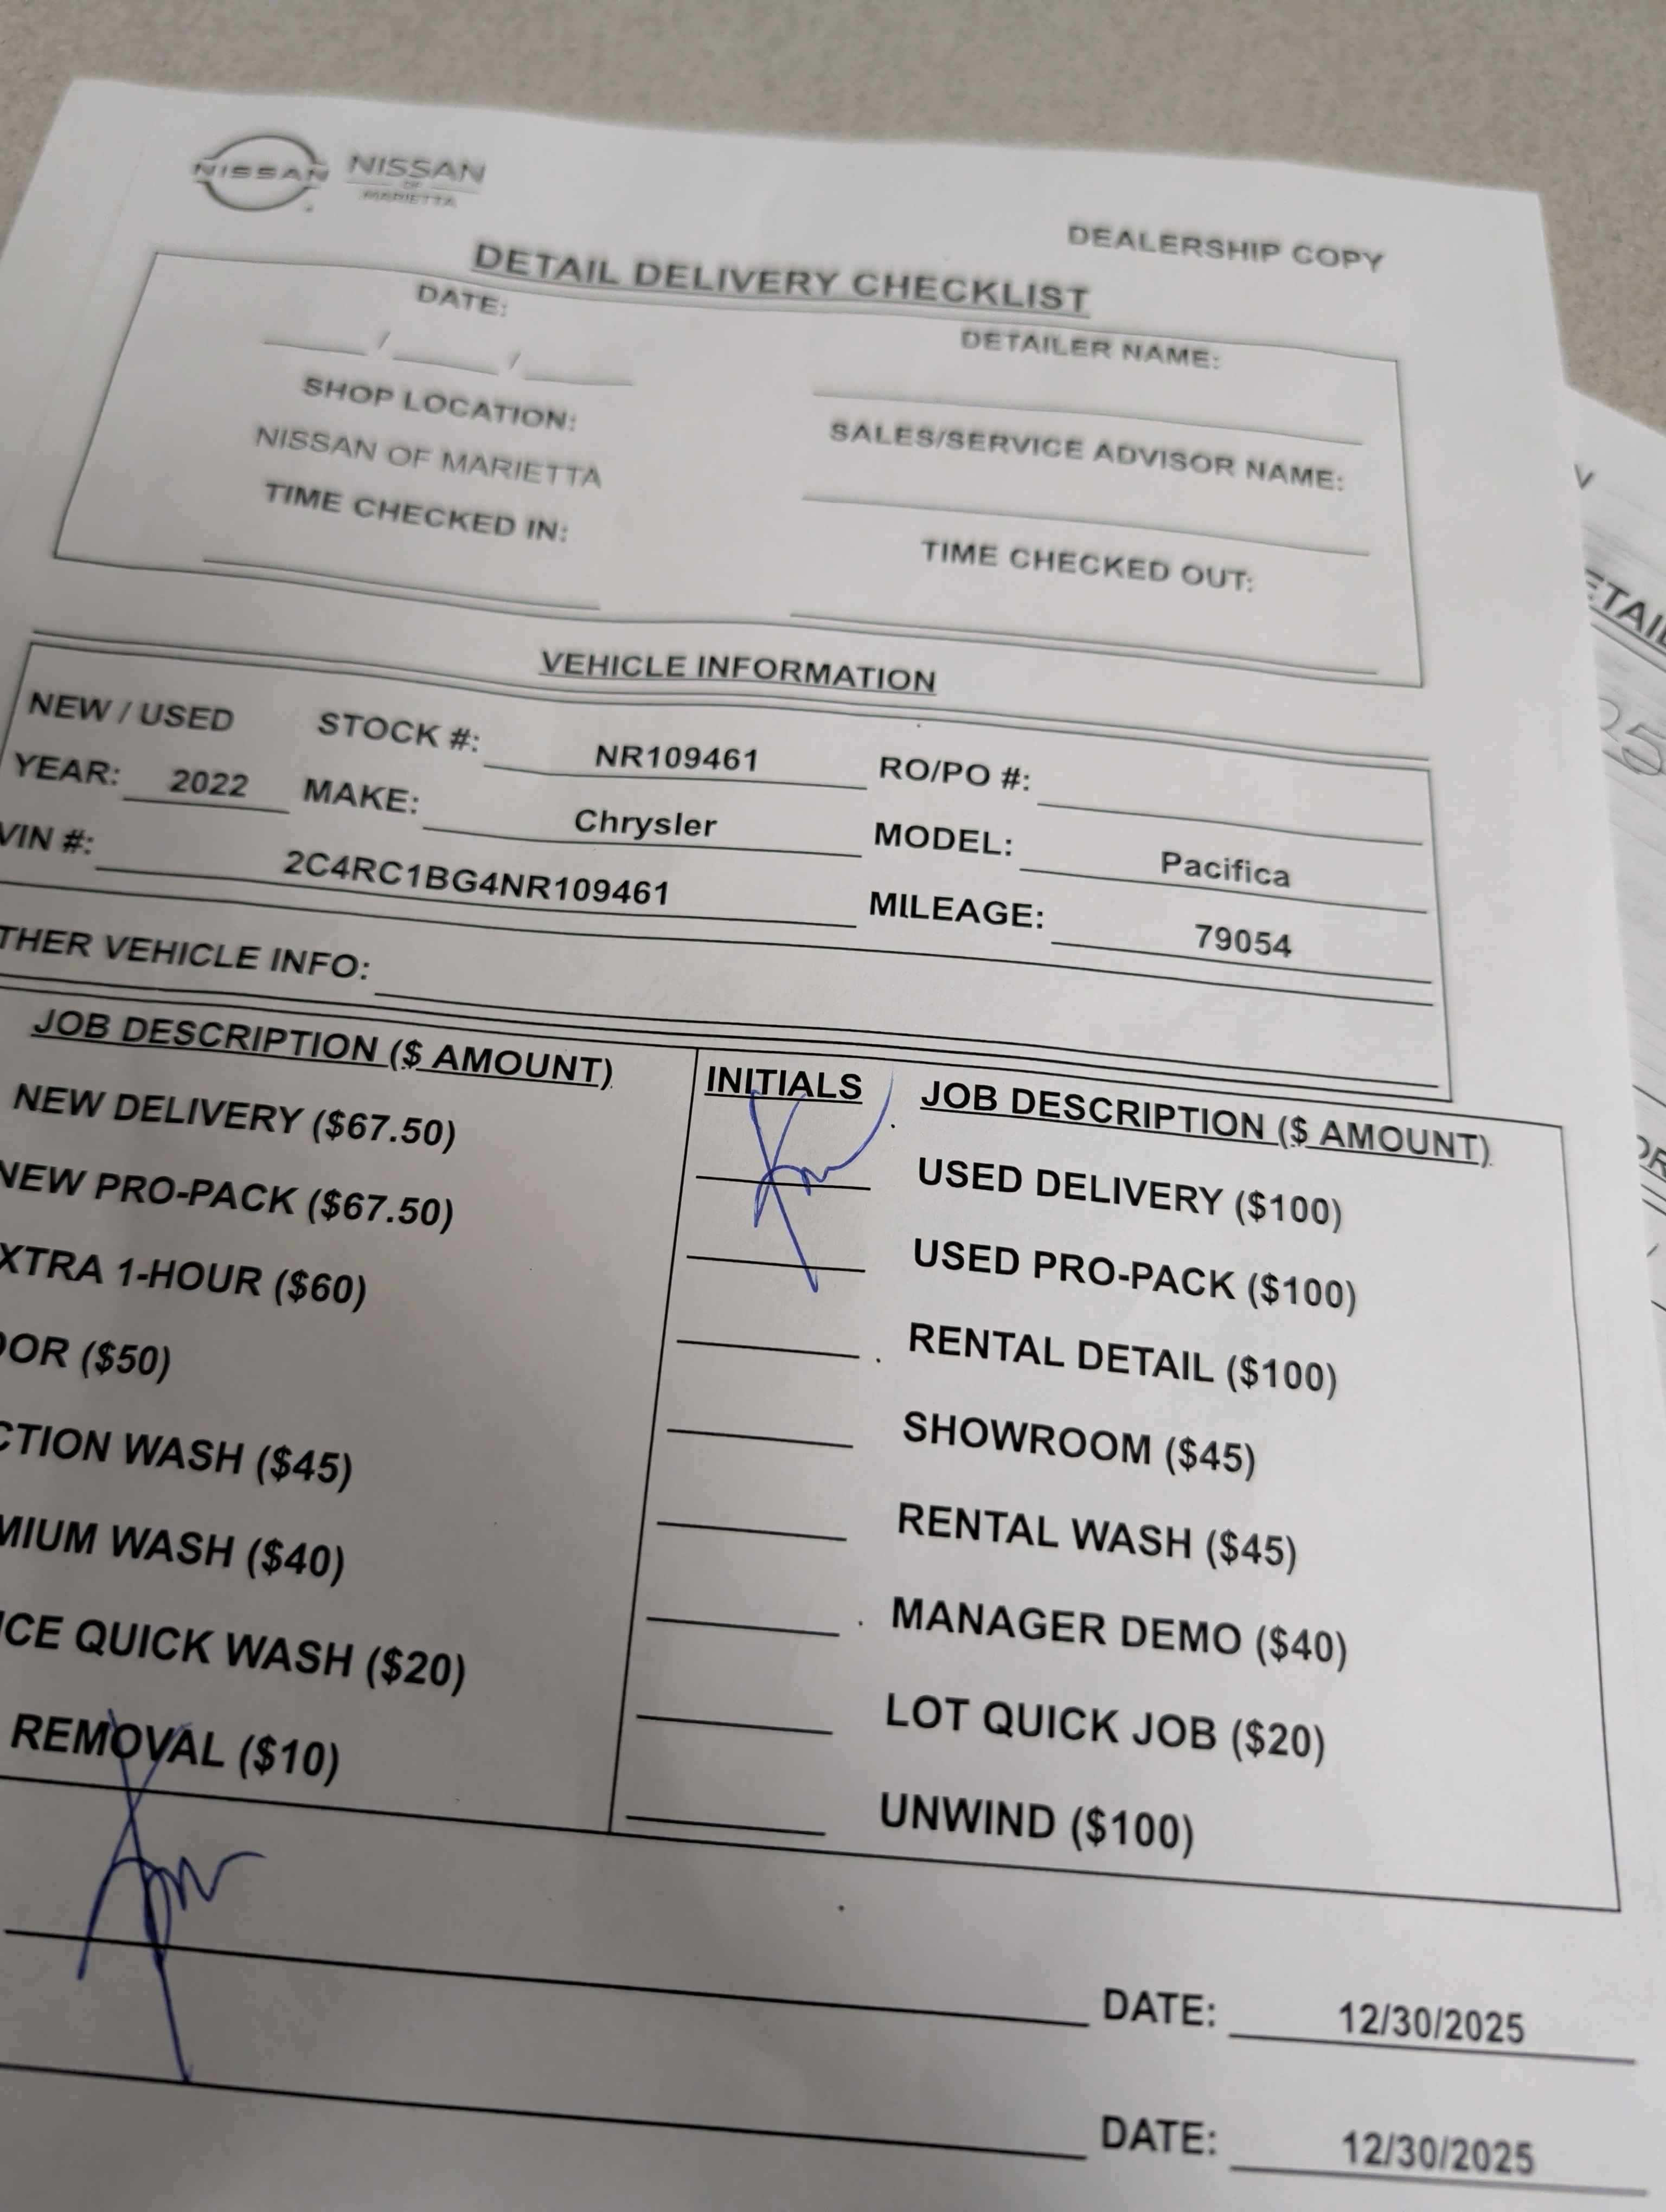 NISSAN NISSAN
OF
MARIETTA
DEALERSHIP COPY
DETAIL DELIVERY CHECKLIST
DATE: DETAILER NAME:
/ /
SHOP LOCATION: SALES/SERVICE ADVISOR NAME:
NISSAN OF MARIETTA
TIME CHECKED IN: TIME CHECKED OUT:
VEHICLE INFORMATION
NEW / USED STOCK #: NR109461 RO/PO #:
YEAR: 2022 MAKE: Chrysler MODEL: Pacifica
VIN #: 2C4RC1BG4NR109461 MILEAGE: 79054
THER VEHICLE INFO:
JOB DESCRIPTION ($ AMOUNT) INITIALS JOB DESCRIPTION ($ AMOUNT)
NEW DELIVERY ($67.50) USED DELIVERY ($100)
NEW PRO-PACK ($67.50) USED PRO-PACK ($100)
XTRA 1-HOUR ($60) RENTAL DETAIL ($100)
OOR ($50) SHOWROOM ($45)
CTION WASH ($45) RENTAL WASH ($45)
MIUM WASH ($40) MANAGER DEMO ($40)
ICE QUICK WASH ($20) LOT QUICK JOB ($20)
REMOVAL ($10) UNWIND ($100)
DATE: 12/30/2025
DATE: 12/30/2025
ETAIL
25